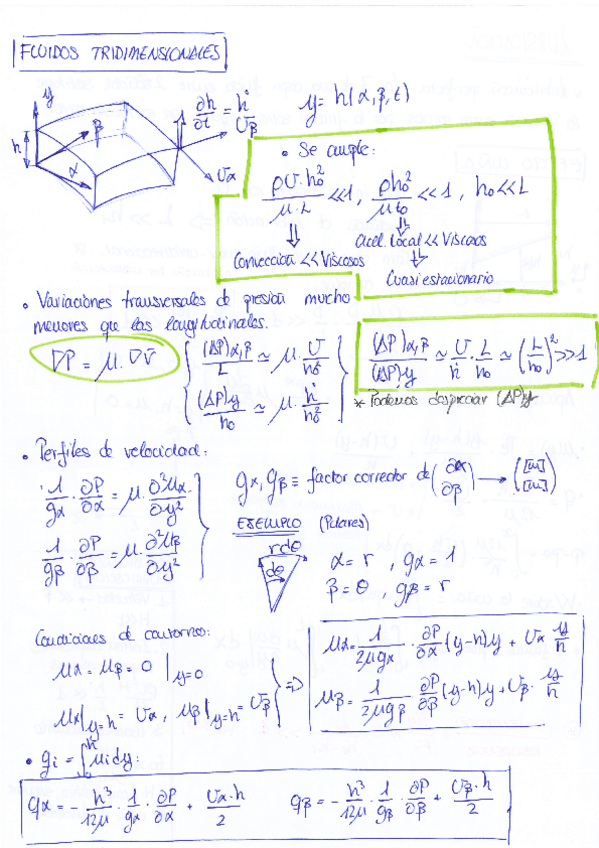 FLUIDOS TRIDIMENSIONALES
y
h
β
α
∂h/∂t = ḣ
Uβ
Uα
y = h(α, β, t)
• Se cumple:
ρU·h₀²/μ·L <<1, ρh₀²/μt₀ << 1, h₀ << L
⇓ ↓
Convección << Viscosos
Acel. Local << Viscosos
↓
Cuasi estacionario
• Variaciones transversales de presión mucho
menores que las longitudinales.
∇P = μ·∇v̄
(ΔP)α,β/L ≃ μ·U/h₀²
(ΔP)y/h₀ ≃ μ·ḣ/h₀²
(ΔP)α,β/(ΔP)y ≃ U/ḣ · L/h₀ ≃ (L/h₀)² >>1
* Podemos despreciar (ΔP)y
• Perfiles de velocidad:
1/gα · ∂P/∂α = μ·∂²uα/∂y²
1/gβ · ∂P/∂β = μ·∂²uβ/∂y²
gα, gβ ≡ factor corrector de (∂α ∂β) → ([m] [m])
EJEMPLO (Polares)
rdθ
dθ
α = r , gα = 1
β = θ , gβ = r
Condiciones de contorno:
uα = uβ = 0 |y=0
uα|y=h = Uα, uβ|y=h = Uβ
⇒
uα = 1/2μgα · ∂P/∂α (y-h)y + Uα y/h
uβ = 1/2μgβ · ∂P/∂β (y-h)y + Uβ · y/h
• qi = ∫₀ʰ ui dy:
qα = - h³/12μ · 1/gα · ∂P/∂α + Uα·h/2 qβ = - h³/12μ · 1/gβ · ∂P/∂β + Uβ·h/2